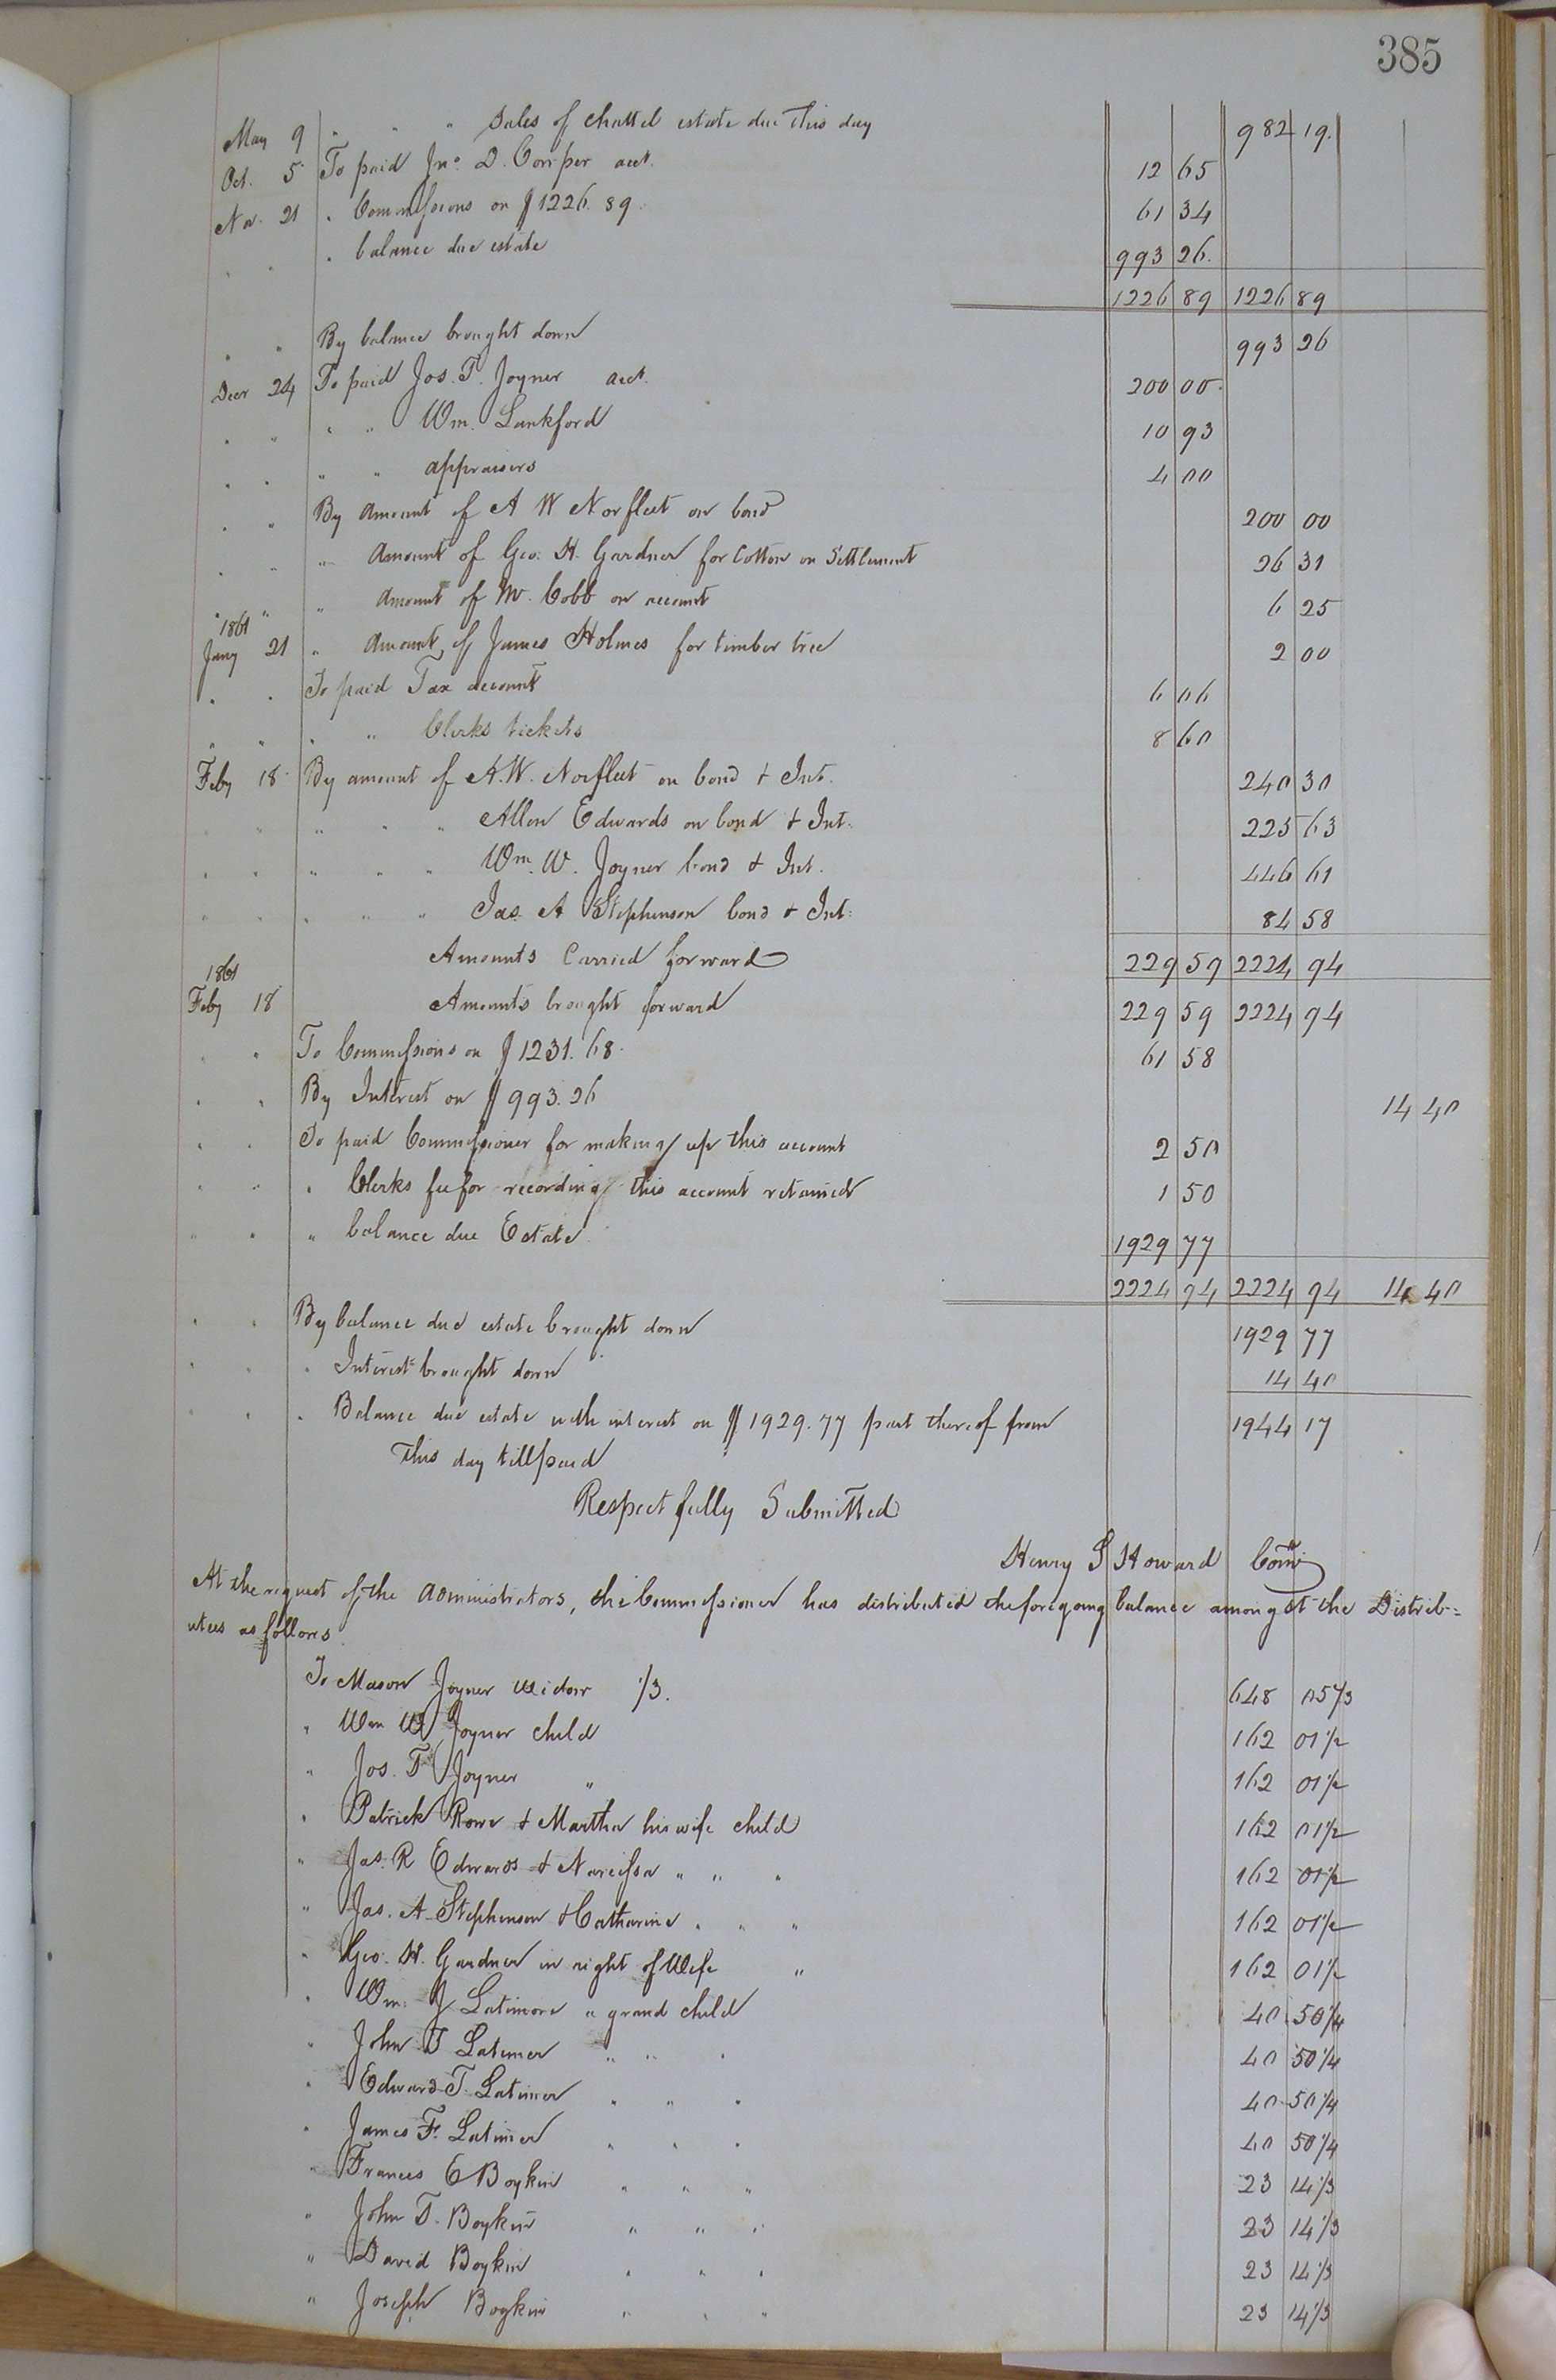 385
May 9 " " " Sales of Chattel estate due this day 982 19.
Oct. 5 To paid Jno. D. Corr per acct. 12 65
Nov. 21 " Commissions on $1226.89. 61 34
" " " balance due estate 993 26.
1226 89 1226 89
" " By balance brought down 993 26
Decr 24 To paid Jos. T. Joyner acct. 200 00.
" " " " Wm. Lankford 10 93
" " " " appraisers 4 00
" " By Amount of A W Norfleet on bond 200 00
" " " Amount of Geo. H. Gardner for Cotton on Settlement 26 31
" " " Amount of M. Cobb on account 6 25
1861
Jany 21 " Amount of James Holmes for timber tree 2 00
" " To paid Tax account 6 06
" " " " Clerks tickets 8 60
Feby 18 By amount of A.W. Norfleet on bond & Int. 240 30
" " " " " Allen Edwards on bond & Int. 225 63
" " " " " Wm. W. Joyner bond & Int. 446 61
" " " " " Jas. A Stephenson bond & Int. 84 58
Amounts Carried forward 229 59 2224 94
1861
Feby 18 Amounts brought forward 229 59 2224 94
" " To Commissions on $1231.68. 61 58
" " By Interest on $993.26 14 40
" " To paid Commissioner for making up this account 2 50
" " " Clerks fee for recording this account retained 1 50
" " " balance due Estate 1929 77
2224 94 2224 94 14 40
" " By balance due estate brought down 1929 77
" " " Interest brought down 14 40
" " " Balance due estate with interest on $1929.77 part thereof from 1944 17
this day till paid
Respectfully Submitted
Henry S Howard Comr
At the request of the Administrators, the Commissioner has distributed the foregoing balance amongst the Distrib-
utees as follows
To Mason Joyner Widow 1/3. 648 05 2/3
" Wm W Joyner child 162 01 1/2
" Jos. T Joyner " 162 01 1/2
" Patrick Rowe & Martha his wife child 162 01 1/2
" Jas. R Edwards & Narcissa " " " 162 01 1/2
" Jas. A Stephenson & Catharine " " " 162 01 1/2
" Geo. H. Gardner in right of Wife " 162 01 1/2
" Wm. J Latimore a grand child 40 50 1/4
" John T Latimer " " " 40 50 1/4
" Edward T. Latimer " " " 40 50 1/4
" James F. Latimer " " " 40 50 1/4
" Frances E Boykin " " " 23 14 1/3
" John T. Boykin " " " 23 14 1/3
" David Boykin " " " 23 14 1/3
" Joseph Boykin " " " 23 14 1/3